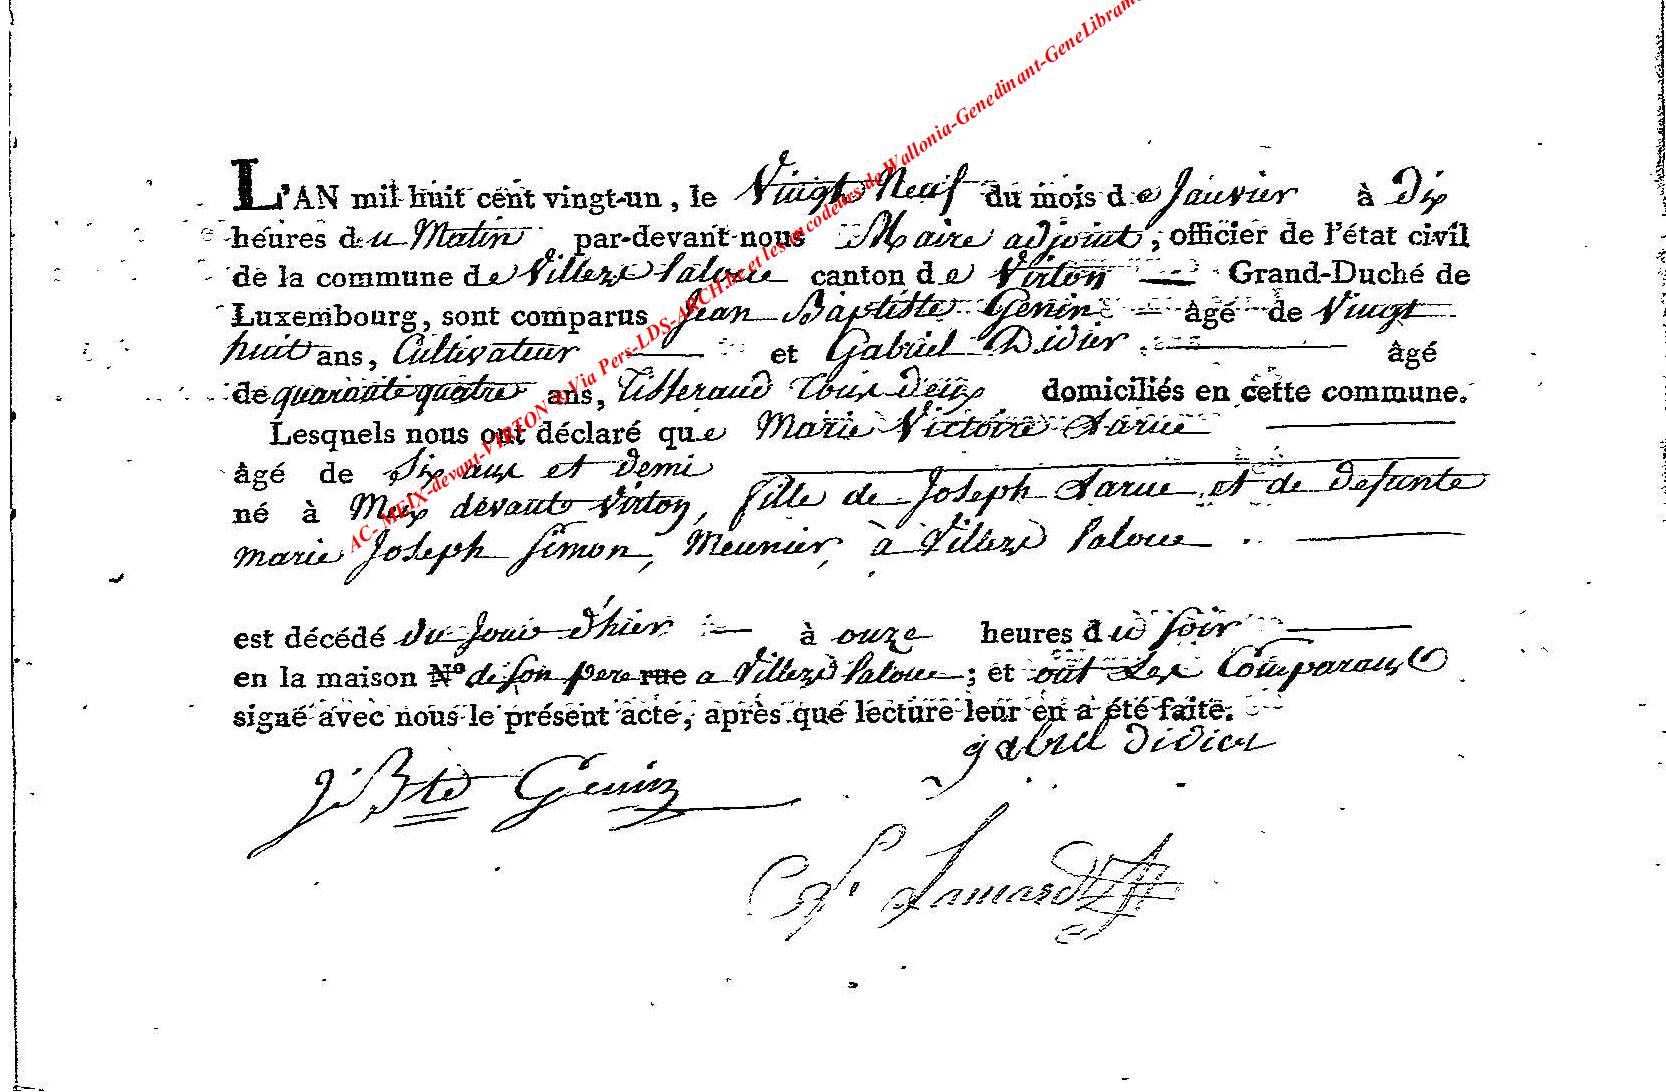 L'AN mil huit cent vingt-un, le Vingt Neuf du mois de Janvier à Dix
heures du Matin par-devant nous Maire adjoint, officier de l'état civil
de la commune de Villers Laloue canton de Virton Grand-Duché de
Luxembourg, sont comparus Jean Baptiste Genin âgé de Vingt
huit ans, Cultivateur et Gabriel Didier âgé
de quarante quatre ans, Tisserand Tous Deux domiciliés en cette commune.
Lesquels nous ont déclaré que Marie Victoire Larue
âgé de Six ans et demi
né à Meix devant Virton, fille de Joseph Larue et de defunte
marie Joseph Simon, Meunier, à Villers Laloue
est décédé du Jour d'hier à onze heures du Soir
en la maison N° de son pere rue a Villers Laloue; et ont Les Comparants
signé avec nous le présent acte, après que lecture leur en a été faite.
gabriel didier
J Bte Genin
Lamard
AC- MEIX-devant-VIRTON Via Pers-LDS-ARCH.be et les encodeurs de Wallonia-Genedinant-GeneLibram